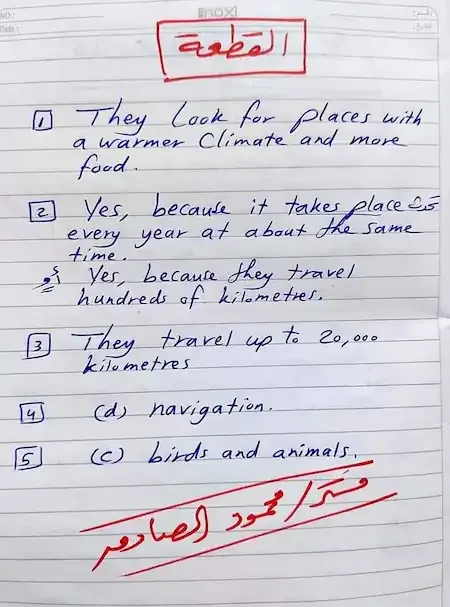 NO:
Date:
القطعة
1 They Look for places with
a warmer Climate and more
food.
2 Yes, because it takes place
every year at about the same
time.
أو Yes, because they travel
hundreds of kilometres.
3 They travel up to 20,000
kilometres
4 (d) navigation.
5 (c) birds and animals.
مستر/ محمود الصادق